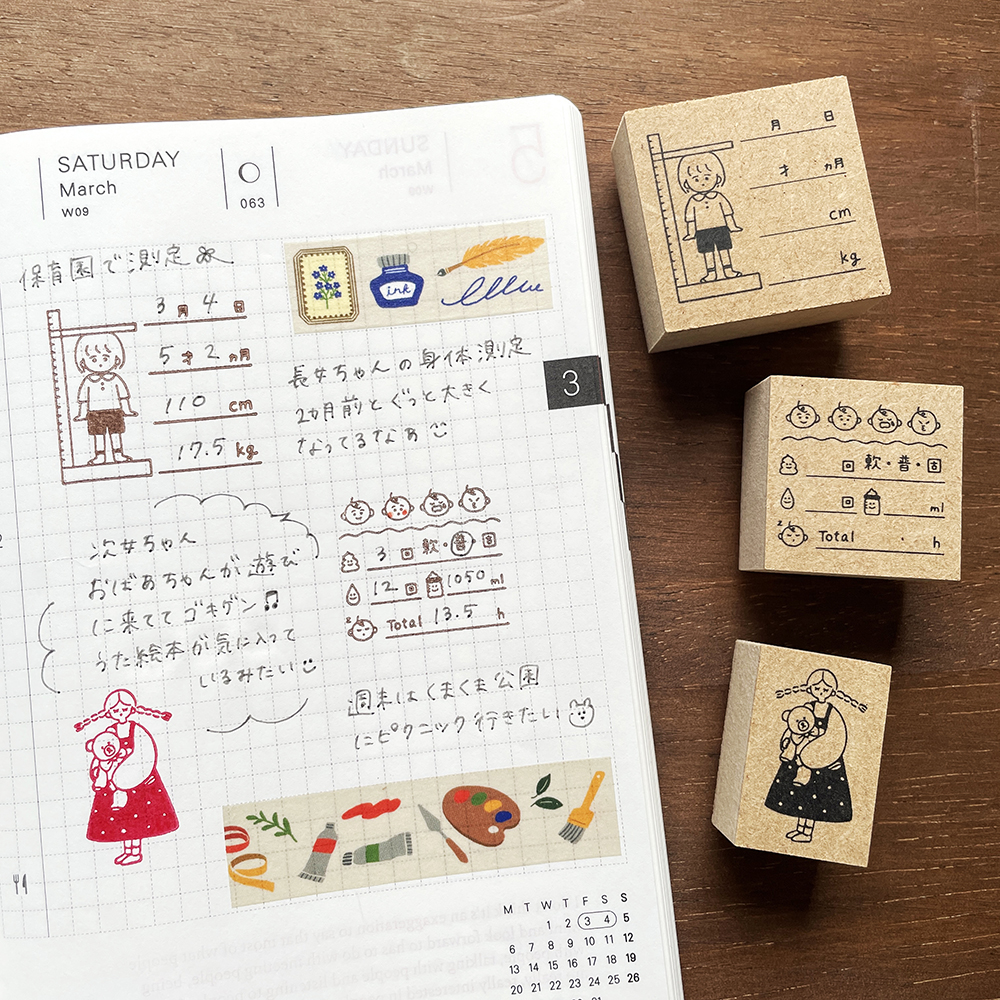 SATURDAY
March
W09
063
SUNDAY
March
W09
5
保育園で測定
3月 4日
5才2ヵ月
110 cm
17.5 kg
ink
長女ちゃんの身体測定
2ヵ月前とぐっと大きく
なってるなぁ
3
次女ちゃん
おばあちゃんが遊び
に来ててゴキゲン♫
うた絵本が気に入って
いるみたい
3回 軟・普・固
12回 1050 ml
z
Total 13.5 h
週末はくまくま公園
にピクニック行きたい
M T W T F S S
1 2 3 4 5
6 7 8 9 10 11 12
13 14 15 16 17 18 19
20 21 22 23 24 25 26
月 日
才 ヵ月
cm
kg
回 軟・普・固
回 ml
z
Total . h